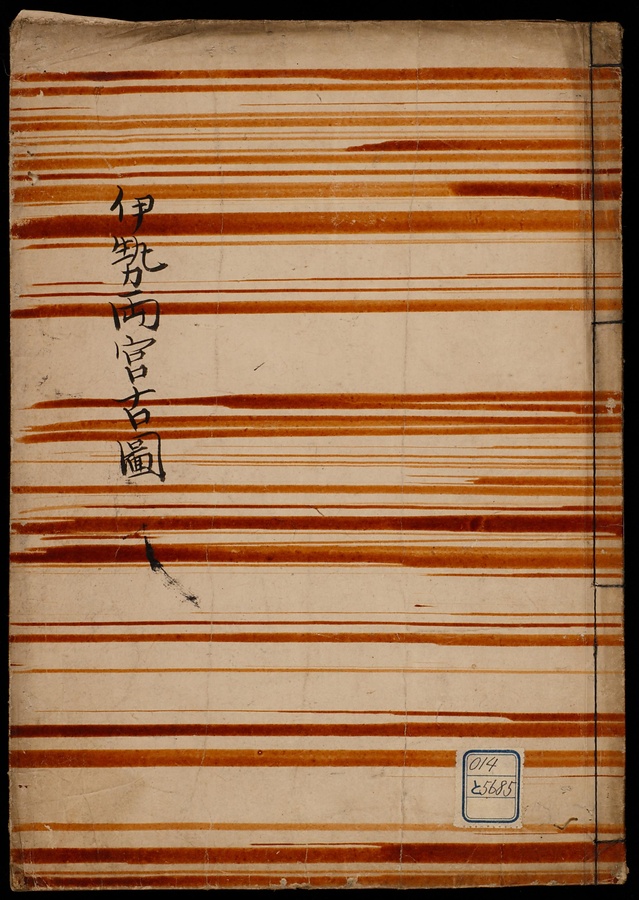 伊勢両宮古圖
014
と5685